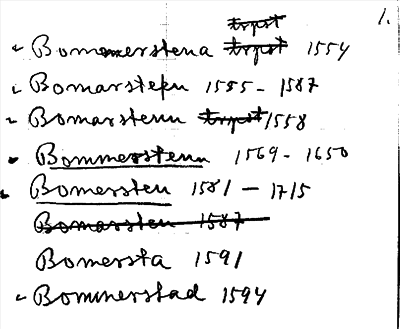 1.
Bomenerstena 1554
Bomarstepn 1555 - 1587
Bomarstenn 1558
Bommerstenn 1569 - 1650
Bomersten 1581 - 1715
Bomarsten 1587
Bomersta 1591
Bommerstad 1594